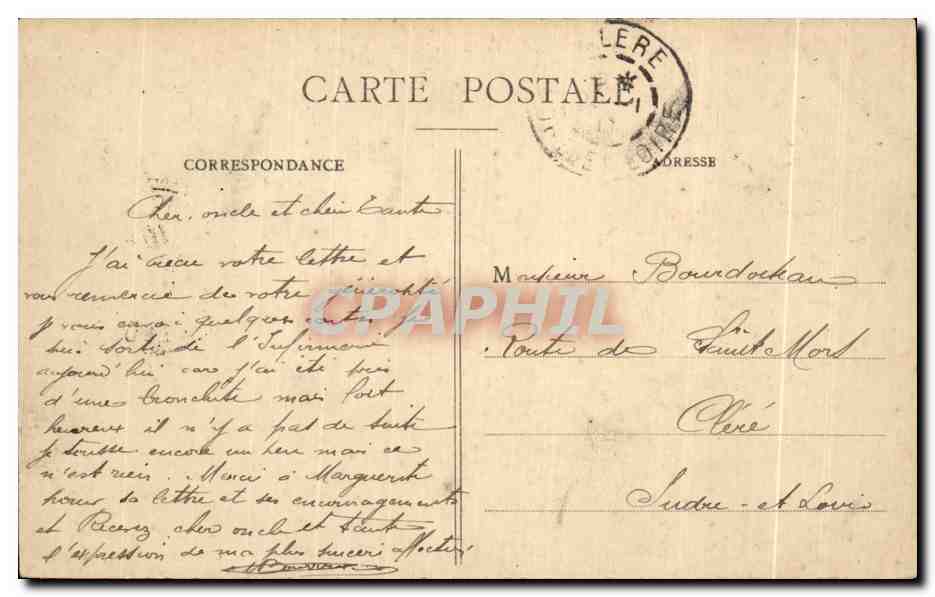 CARTE POSTALE
CLERE
INDRE ET LOIRE
CORRESPONDANCE
ADRESSE
Cher oncle et chère Tante
J'ai reçu votre lettre et
vous remercie de votre générosité
je vous envoi quelques cartes je
suis sorti de l'Infirmerie
aujourd'hui car j'ai été pris
d'une bronchite mais
heureux il n'y a pas de suite
je tousse encore un peu mais ce
n'est rien. Merci à Marguerite
pour sa lettre et ses encouragements
et Recevez cher oncle et tante
l'expression de ma plus sincère affection
Monsieur Bourdoiseau
Route de Saint Mars
Cléré
Indre-et-Loire
CPAPHIL